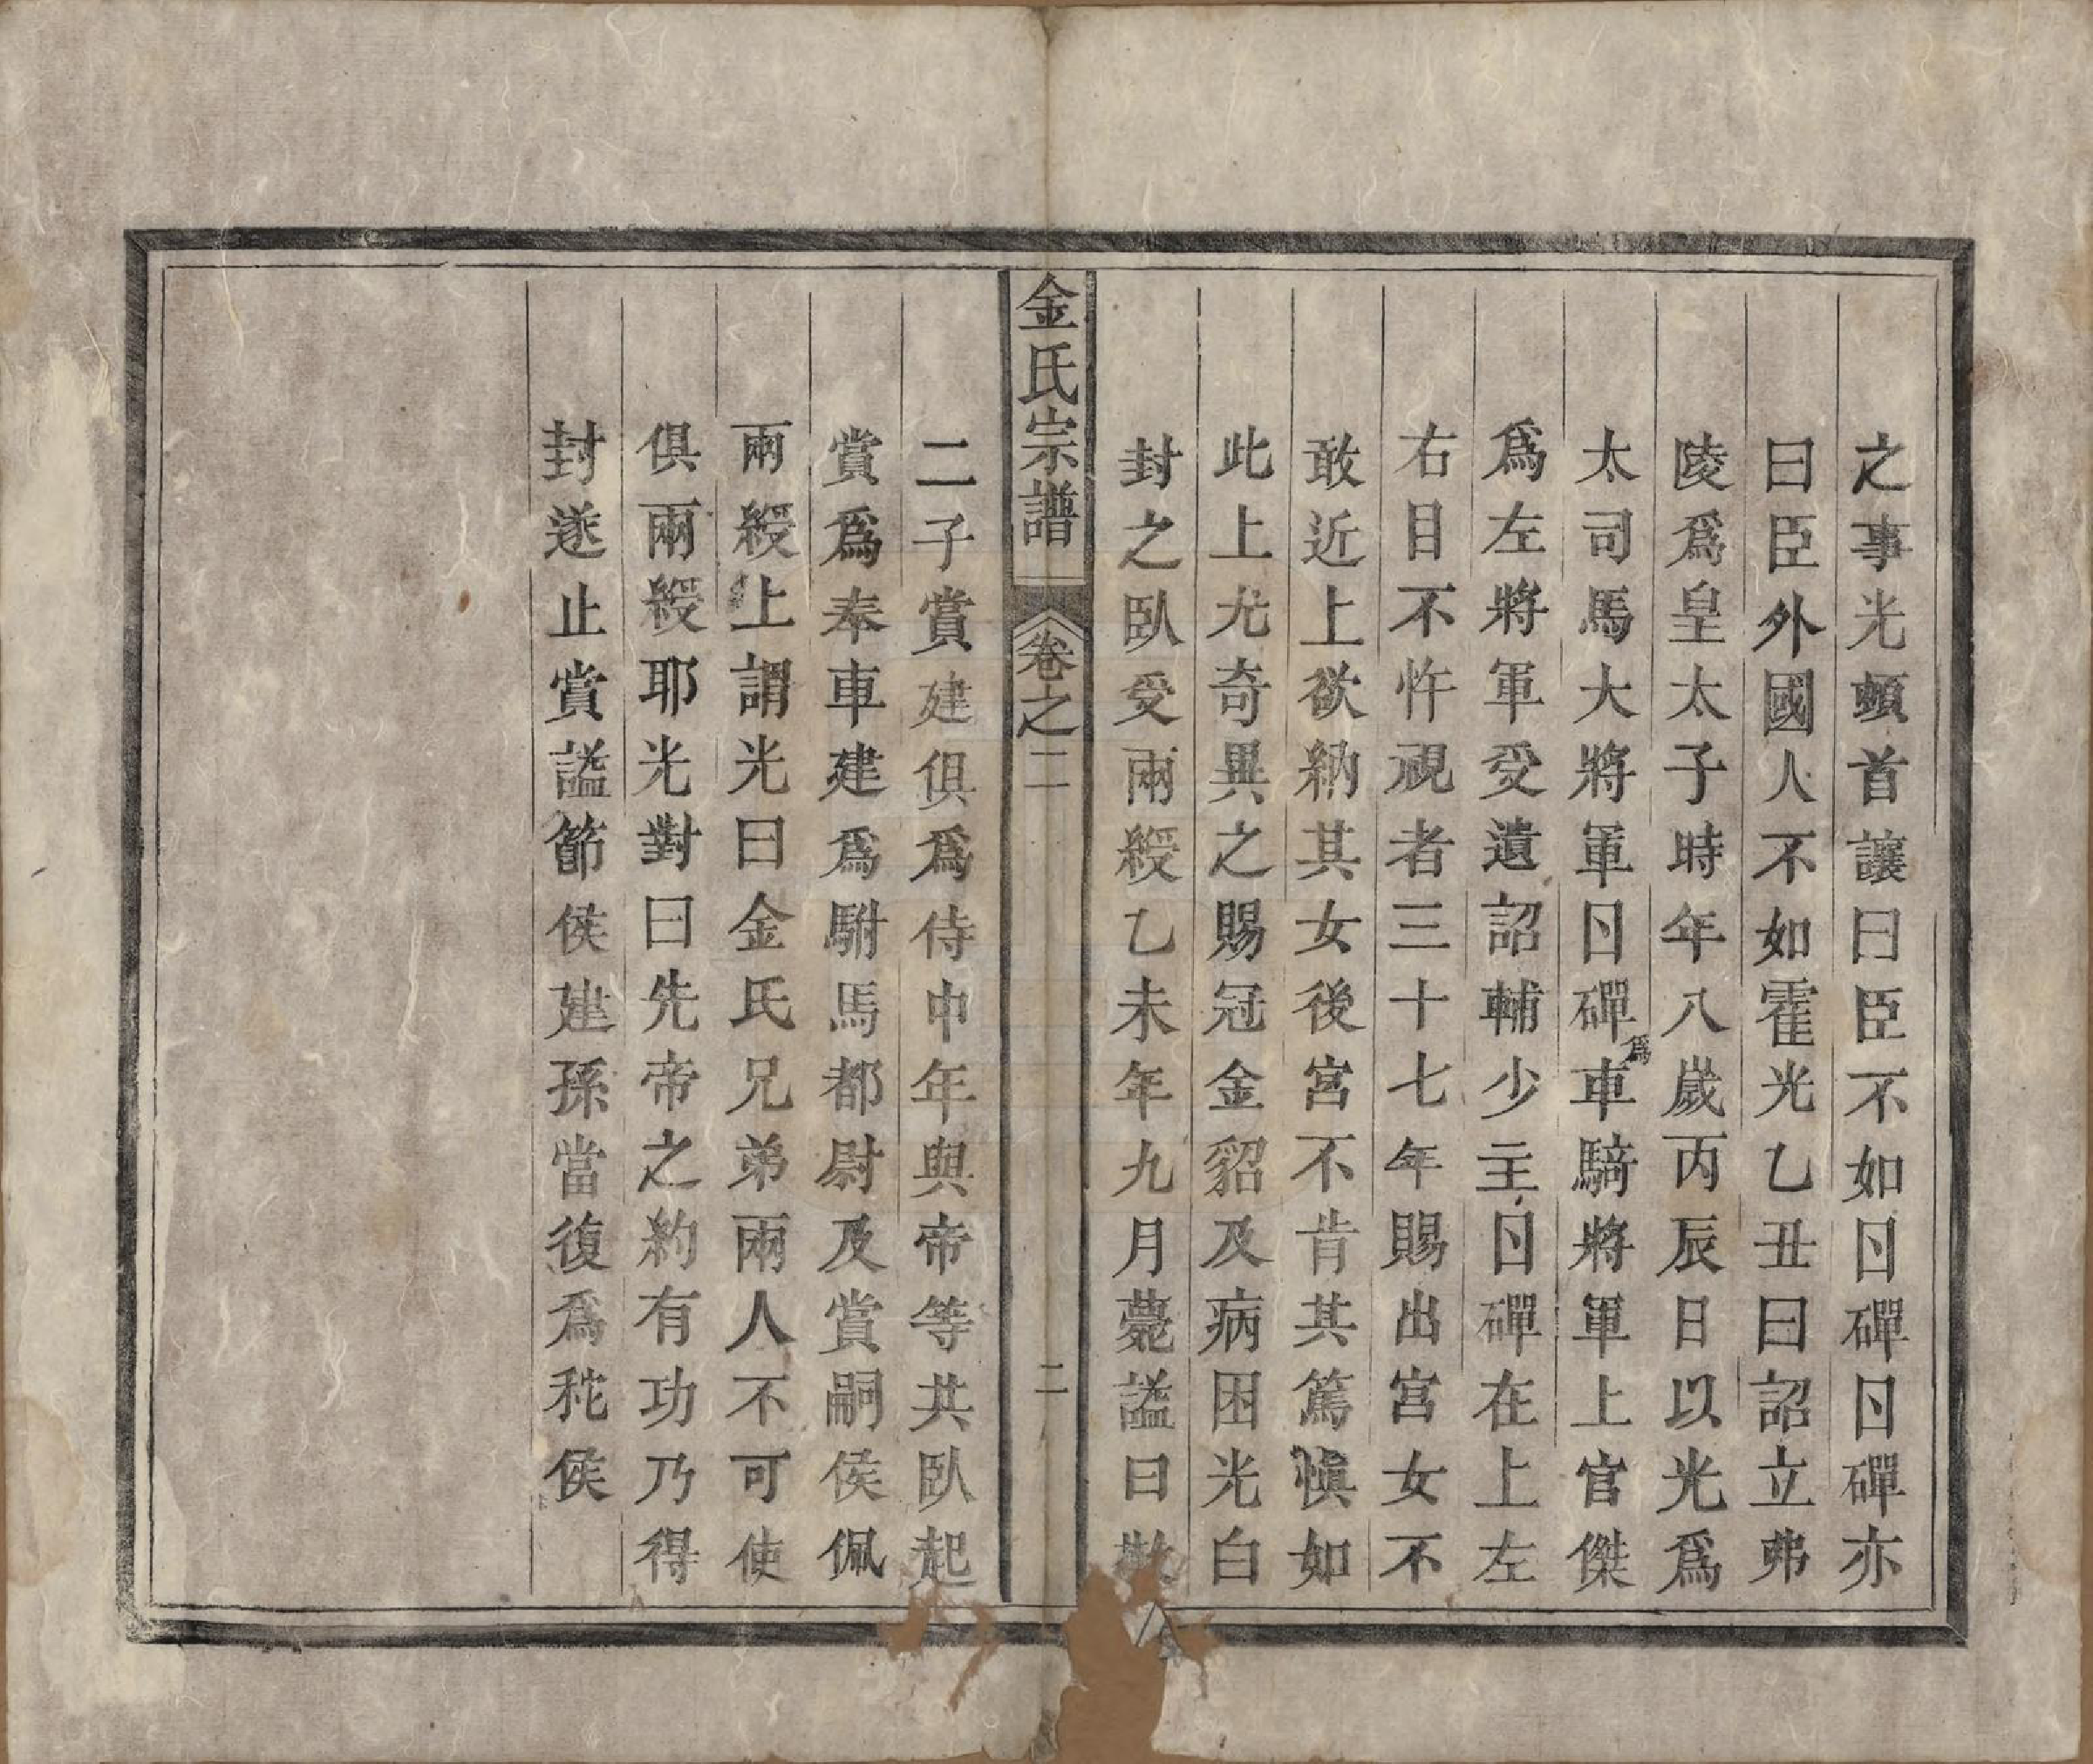 之事光頓首讓曰臣不如日磾日磾亦
曰臣外國人不如霍光乙丑曰詔立弗
陵爲皇太子時年八歲丙辰日以光爲
太司馬大將軍日磾爲車騎將軍上官傑
爲左將軍受遺詔輔少主日磾在上左
右目不忤視者三十七年賜出宮女不
敢近上欲納其女後宮不肯其篤愼如
此上尤奇異之賜冠金貂及病困光白
封之臥受兩綬乙未年九月薨謚曰敬
金氏宗譜 卷之二 二
二子賞建俱爲侍中年與帝等共臥起
賞爲奉車建爲駙馬都尉及賞嗣侯佩
兩綬上謂光曰金氏兄弟兩人不可使
俱兩綬耶光對曰先帝之約有功乃得
封遂止賞謚節侯建孫當復爲秺侯